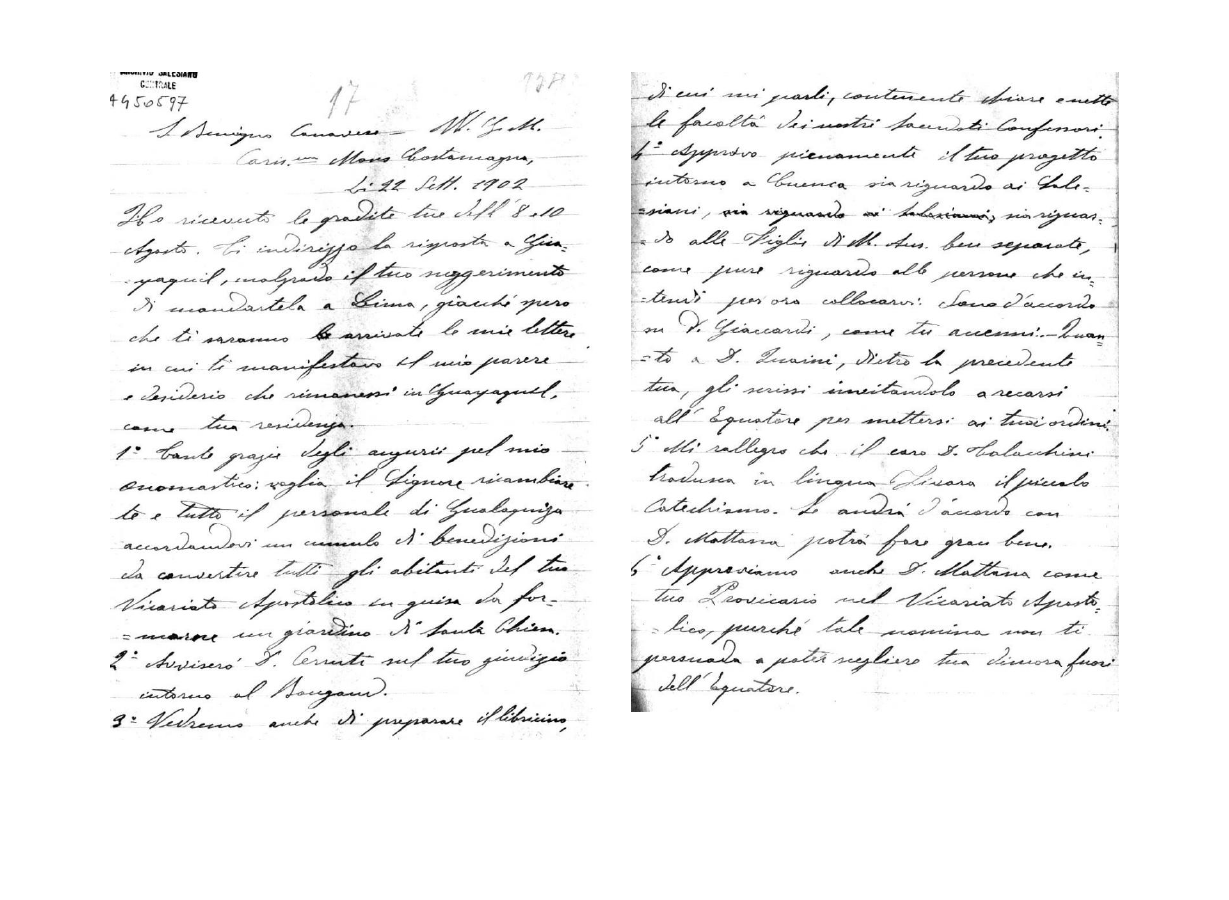 ARCHIVIO SALESIANO
CENTRALE
A450597
17
S. Benigno Canavese – W. G. M.
Cariss.mo Mons Costamagna,
Li 22 Sett. 1902
Ho ricevuto le gradite tue dell' 8 e 10
Agosto. Ti indirizzo la risposta a Gua-
yaquil, malgrado il tuo suggerimento
di mandartela a Lima, giacché spero
che ti saranno arrivate le mie lettere
in cui ti manifestavo il mio parere
e desiderio che rimanessi in Guayaquil,
come tua residenza.
1° Tante grazie degli augurii pel mio
onomastico: voglia il Signore ricambiare
te e tutto il personale di Gualaquiza
accordandovi un cumulo di benedizioni
da convertire tutti gli abitanti del tuo
Vicariato Apostolico in guisa da for-
=marne un giardino di Santa Chiesa.
2° Avviserò D. Cerruti sul tuo giudizio
intorno al Bougaud.
3° Vedremo anche di preparare il libricino,
di cui mi parli, contenente chiare e nette
le facoltà dei nostri Sacerdoti Confessori.
4° Approvo pienamente il tuo progetto
intorno a Cuenca sia riguardo ai Sale=
=siani, sia riguardo ai Salesiani, sia riguar=
=do alle Figlie di M. Aus. ben separate,
come pure riguardo alle persone che in=
=tendi per ora collocarvi: Sono d'accordo
su D. Giaccardi, come tu accenni.– Quan=
=to a D. Quaini, dietro la precedente
tua, gli scrissi invitandolo a recarsi
all' Equatore per mettersi ai tuoi ordini.
5° Mi rallegro che il caro D. Tallachini
traduca in lingua Jivara il piccolo
Catechismo. Se andrà d'accordo con
D. Mattana potrà fare gran bene.
6° Approviamo anche D. Mattana come
tuo Provicario nel Vicariato Aposto=
=lico, purché tale nomina non ti
persuada a poter scegliere tua dimora fuori
dell' Equatore.